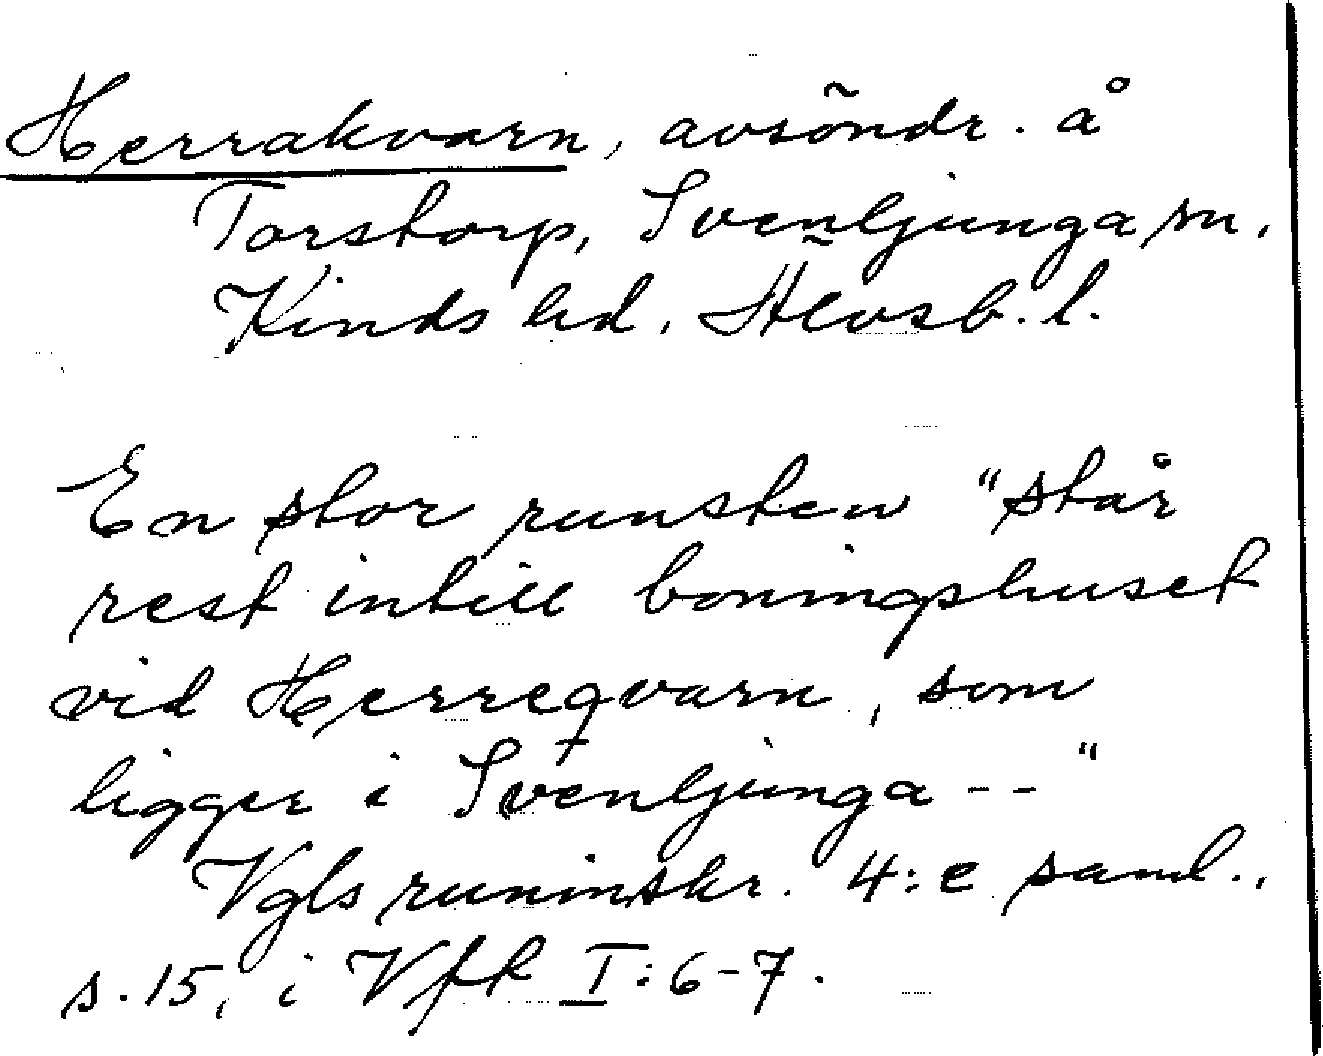 Herrakvarn, avsöndr. å
Torstorp, Svenljunga sn.
Kinds hd. Älvsb. l.
En stor runsten "står
rest intill boningshuset
vid Herreqvarn, som
ligger i Svenljunga --"
Vgls runinskr. 4:e saml.,
s. 15, i Vfk I:6-7.